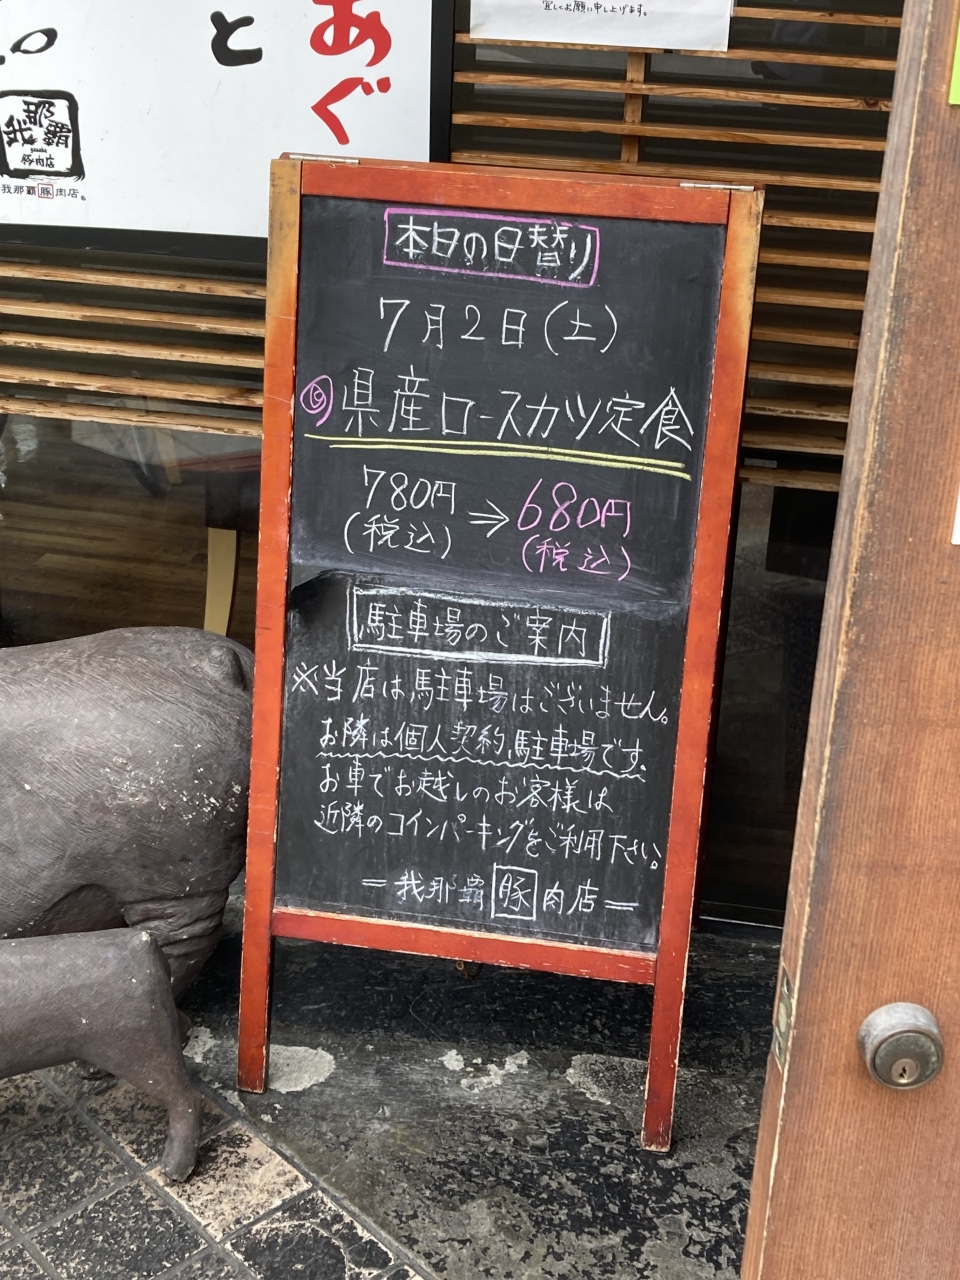 宜しくお願い申し上げます。
あぐ
と
我那覇
豚肉店
我那覇豚肉店
本日の日替り
7月2日(土)
県産ロースカツ定食
780円 ⇒ 680円
(税込) (税込)
駐車場のご案内
※当店は駐車場はございません。
お隣は個人契約駐車場です。
お車でお越しのお客様は
近隣のコインパーキングをご利用下さい。
=我那覇豚肉店=